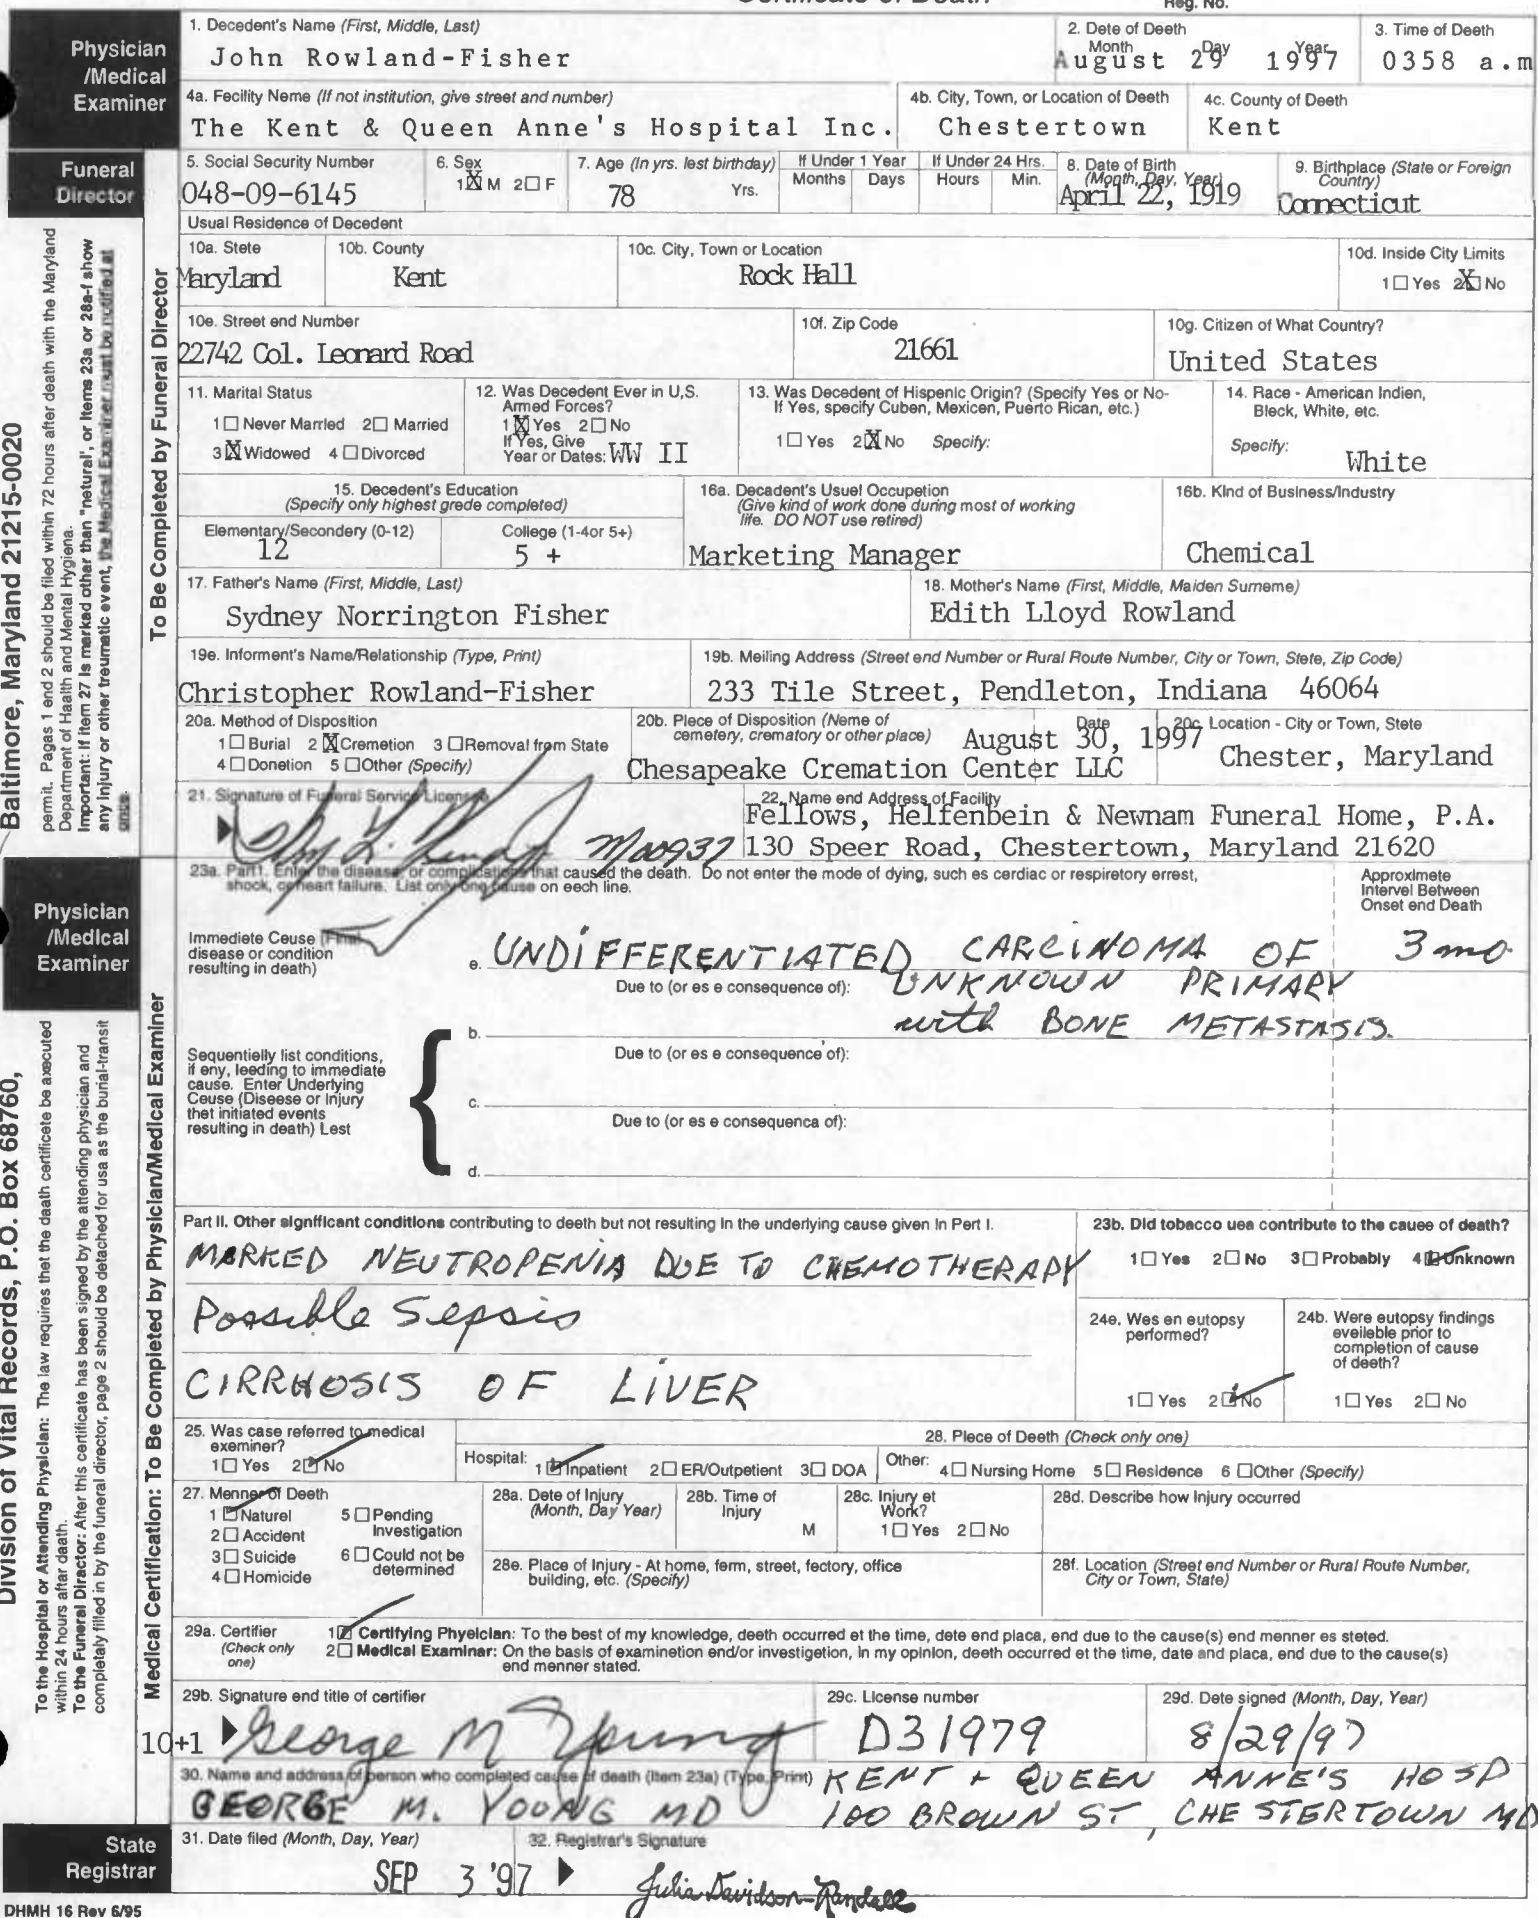 Certificate of Death
Reg. No.
Physician /Medical Examiner
1. Decedent's Name (First, Middle, Last)
John Rowland-Fisher
2. Date of Death
Month Day Year
August 29 1997
3. Time of Death
0358 a.m
4a. Facility Name (If not institution, give street and number)
The Kent & Queen Anne's Hospital Inc.
4b. City, Town, or Location of Death
Chestertown
4c. County of Death
Kent
Funeral Director
5. Social Security Number
048-09-6145
6. Sex
1 X M 2 □ F
7. Age (In yrs. last birthday)
78 Yrs.
If Under 1 Year
Months Days
If Under 24 Hrs.
Hours Min.
8. Date of Birth
(Month, Day, Year)
April 22, 1919
9. Birthplace (State or Foreign Country)
Connecticut
To Be Completed by Funeral Director
Usual Residence of Decedent
10a. State
Maryland
10b. County
Kent
10c. City, Town or Location
Rock Hall
10d. Inside City Limits
1 □ Yes 2 X No
10e. Street and Number
22742 Col. Leonard Road
10f. Zip Code
21661
10g. Citizen of What Country?
United States
11. Marital Status
1 □ Never Married 2 □ Married
3 X Widowed 4 □ Divorced
12. Was Decedent Ever in U.S. Armed Forces?
1 X Yes 2 □ No
If Yes, Give
Year or Dates: WW II
13. Was Decedent of Hispanic Origin? (Specify Yes or No-
If Yes, specify Cuban, Mexican, Puerto Rican, etc.)
1 □ Yes 2 X No Specify:
14. Race - American Indian, Black, White, etc.
Specify:
White
15. Decedent's Education
(Specify only highest grade completed)
Elementary/Secondary (0-12)
12
College (1-4or 5+)
5 +
16a. Decedent's Usual Occupation
(Give kind of work done during most of working
life. DO NOT use retired)
Marketing Manager
16b. Kind of Business/Industry
Chemical
17. Father's Name (First, Middle, Last)
Sydney Norrington Fisher
18. Mother's Name (First, Middle, Maiden Surname)
Edith Lloyd Rowland
19a. Informant's Name/Relationship (Type, Print)
Christopher Rowland-Fisher
19b. Mailing Address (Street and Number or Rural Route Number, City or Town, State, Zip Code)
233 Tile Street, Pendleton, Indiana 46064
20a. Method of Disposition
1 □ Burial 2 X Cremation 3 □ Removal from State
4 □ Donation 5 □ Other (Specify)
20b. Place of Disposition (Name of
cemetery, crematory or other place)
Date
August 30, 1997
Chesapeake Cremation Center LLC
20c. Location - City or Town, State
Chester, Maryland
21. Signature of Funeral Service Licensee
M00937
22. Name and Address of Facility
Fellows, Helfenbein & Newnam Funeral Home, P.A.
130 Speer Road, Chestertown, Maryland 21620
Physician /Medical Examiner
23a. Part I. Enter the disease, or complications that caused the death. Do not enter the mode of dying, such as cardiac or respiratory arrest,
shock, or heart failure. List only one cause on each line.
Approximate
Interval Between
Onset and Death
Immediate Cause (Final
disease or condition
resulting in death)
a. UNDIFFERENTIATED CARCINOMA OF 3 mo
Due to (or as a consequence of): UNKNOWN PRIMARY
b. with BONE METASTASIS.
Due to (or as a consequence of):
Sequentially list conditions,
if any, leading to immediate
cause. Enter Underlying
Cause (Disease or Injury
that initiated events
resulting in death) Last
c.
Due to (or as a consequence of):
d.
Medical Certification: To Be Completed by Physician/Medical Examiner
Part II. Other significant conditions contributing to death but not resulting in the underlying cause given in Part I.
MARKED NEUTROPENIA DUE TO CHEMOTHERAPY
Possible Sepsis
CIRRHOSIS OF LIVER
23b. Did tobacco use contribute to the cause of death?
1 □ Yes 2 □ No 3 □ Probably 4 ☑ Unknown
24a. Was an autopsy performed?
1 □ Yes 2 ☑ No
24b. Were autopsy findings
available prior to
completion of cause
of death?
1 □ Yes 2 □ No
25. Was case referred to medical examiner?
1 □ Yes 2 ☑ No
28. Place of Death (Check only one)
Hospital: 1 ☑ Inpatient 2 □ ER/Outpatient 3 □ DOA
Other: 4 □ Nursing Home 5 □ Residence 6 □ Other (Specify)
27. Manner of Death
1 ☑ Natural 5 □ Pending Investigation
2 □ Accident
3 □ Suicide 6 □ Could not be determined
4 □ Homicide
28a. Date of Injury
(Month, Day Year)
28b. Time of Injury
M
28c. Injury at Work?
1 □ Yes 2 □ No
28d. Describe how Injury occurred
28e. Place of Injury - At home, farm, street, factory, office
building, etc. (Specify)
28f. Location (Street and Number or Rural Route Number,
City or Town, State)
29a. Certifier
(Check only one)
1 ☑ Certifying Physician: To the best of my knowledge, death occurred at the time, date and place, and due to the cause(s) and manner as stated.
2 □ Medical Examiner: On the basis of examination and/or investigation, in my opinion, death occurred at the time, date and place, and due to the cause(s)
and manner stated.
29b. Signature and title of certifier
10+1 George M Young
29c. License number
D31979
29d. Date signed (Month, Day, Year)
8/29/97
30. Name and address of person who completed cause of death (Item 23a) (Type, Print)
GEORGE M. YOUNG MD
KENT + QUEEN ANNE'S HOSP
100 BROWN ST, CHESTERTOWN MD
State Registrar
31. Date filed (Month, Day, Year)
SEP 3 '97
32. Registrar's Signature
Julia Davidson-Randall
DHMH 16 Rev 6/95
Division of Vital Records, P.O. Box 68760,
Baltimore, Maryland 21215-0020
To the Hospital or Attending Physician: The law requires that the death certificate be executed
within 24 hours after death.
To the Funeral Director: After this certificate has been signed by the attending physician and
completely filled in by the funeral director, page 2 should be detached for use as the burial-transit
permit. Pages 1 and 2 should be filed within 72 hours after death with the Maryland
Department of Health and Mental Hygiene.
Important: If item 27 is marked other than "natural', or items 23a or 28a-f show
any injury or other traumatic event, the Medical Examiner must be notified at
once.